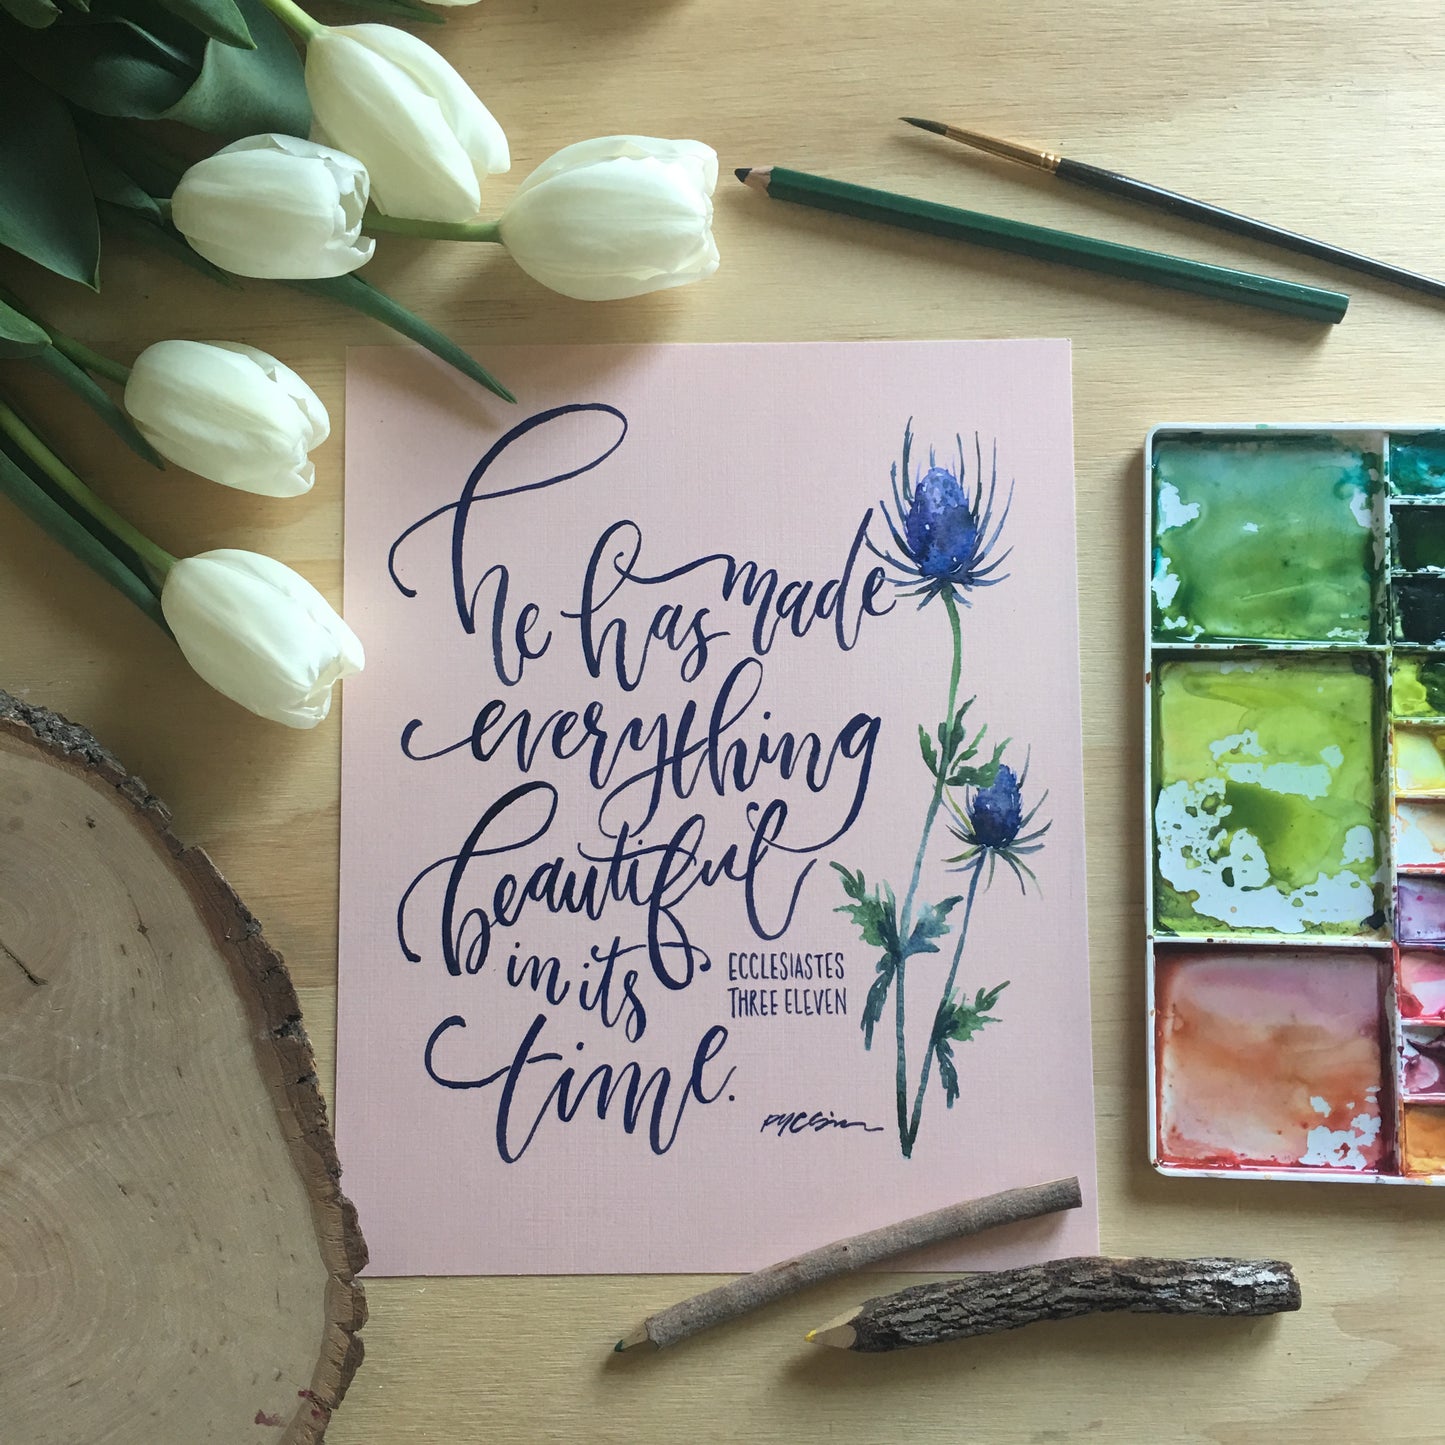 he has made
everything
beautiful
in its
time.
ECCLESIASTES
THREE ELEVEN